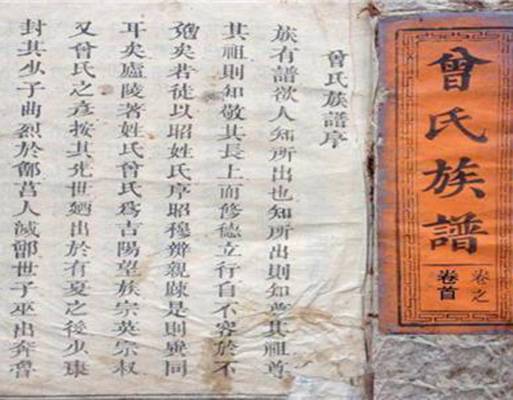 曾氏族譜
卷之
卷首
曾氏族譜序
族有譜欲人知所出也知所出則知尊其祖尊
其祖則知敬其長上而修德立行自不容於不
勉矣若徒以昭姓氏序昭穆辨親踈是則異同
耳矣廬陵著姓氏曾氏為吉陽望族宗英宗叔
又曾氏之彥按其先世廼出於有夏之後少康
封其少子曲烈於鄫莒人滅鄫世子巫出奔魯